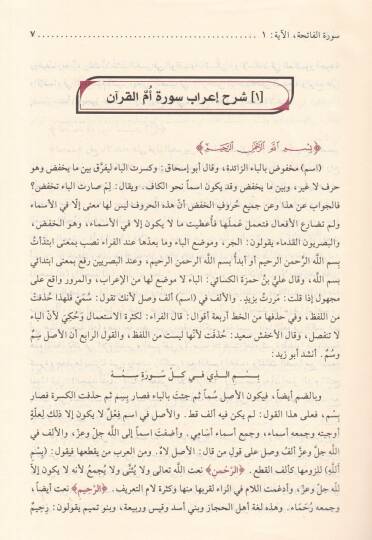 سورة الفاتحة، الآية: ١ ........................................ ٧
[١] شرح إعراب سورة أُمّ القرآن
﴿بِسْمِ اللَّهِ الرَّحْمَٰنِ الرَّحِيمِ﴾
(اسم) مخفوض بالباء الزائدة، وقال أبو إسحاق: وكسرت الباء ليفرَّق بين ما يخفض وهو
حرف لا غير، وبين ما يخفض وقد يكون اسماً نحو الكاف. ويقال: لِمَ صارت الباء تخفض؟
فالجواب عن هذا وعن جميع حُروفِ الخفض أنّ هذه الحروف ليس لها معنى إلّا في الأسماء
ولم تضارع الأفعال فتعمل عملَها فأُعطيت ما لا يكون إلا في الأسماء، وهو الخفض،
والبصريون القدماء يقولون: الجر، وموضع الباء وما بعدها عند الفراء نصب بمعنى ابتدَأتُ
بسم اللَّه الرَّحمن الرحيم أو أبدأُ بسم اللَّه الرحمن الرحيم، وعند البصريين رفع بمعنى ابتدائي
بسم اللَّه، وقال عليُّ بنُ حمزة الكسائي: الباء لا موضع لها من الإعراب، والمرور واقع على
مجهول إذا قلت: مَررتُ بزيدٍ. والألف في (اسم) ألف وصل لأنك تقول: سُمَيّ فلهذا حُذفتْ
من اللفظ، وفي حذفها من الخط أربعة أقوال: قال الفراء: لكثرة الاستعمال وَحُكِيَ لأنّ الباء
لا تنفصل، وقال الأخفش سعيد: حذفت لأنّها ليست من اللفظ، والقول الرابع أن الأصل سِمٌ
وسُمٌ. أنشد أبو زيد:
بِسْمِ الذي في كلّ سُورةٍ سِمُهْ
وبالضم أيضاً، فيكون الأصل سُماً ثم جئتَ بالباء فصار بِسِم ثم حذفت الكسرة فصار
بِسْم، فعلى هذا القول: لم يكن فيه ألف قط. والأصل في اسم فِعْلٌ لا يكون إلا ذلك لِعلّةٍ
أوجبته وجمعه أسماء، وجمع أسماء أسَامي. وأضفتَ اسماً إلى اللَّه جلّ وعزّ، والألف في
اللَّه جلّ وعزّ ألف وصل على قول من قال: الأصل لاهٌ. ومن العرب من يقطعها فيقول: (بِسْمِ
أللهِ) للزومها كألف القطع. ﴿الرّحْمنِ﴾ نعت للَّه تعالى ولا يُثنَّى ولا يُجمعُ لأنه لا يكون إلاّ
للَّه جلّ وعزّ، وأدغمت اللام في الراء لقربها منها وكثرة لام التعريف. ﴿الرّحيم﴾ نعت أيضاً،
وجمعه رُحَمَاء. وهذه لغة أهل الحجاز وبني أسد وقيس وربيعة، وبنو تميم يقولون: رِحِيمٌ